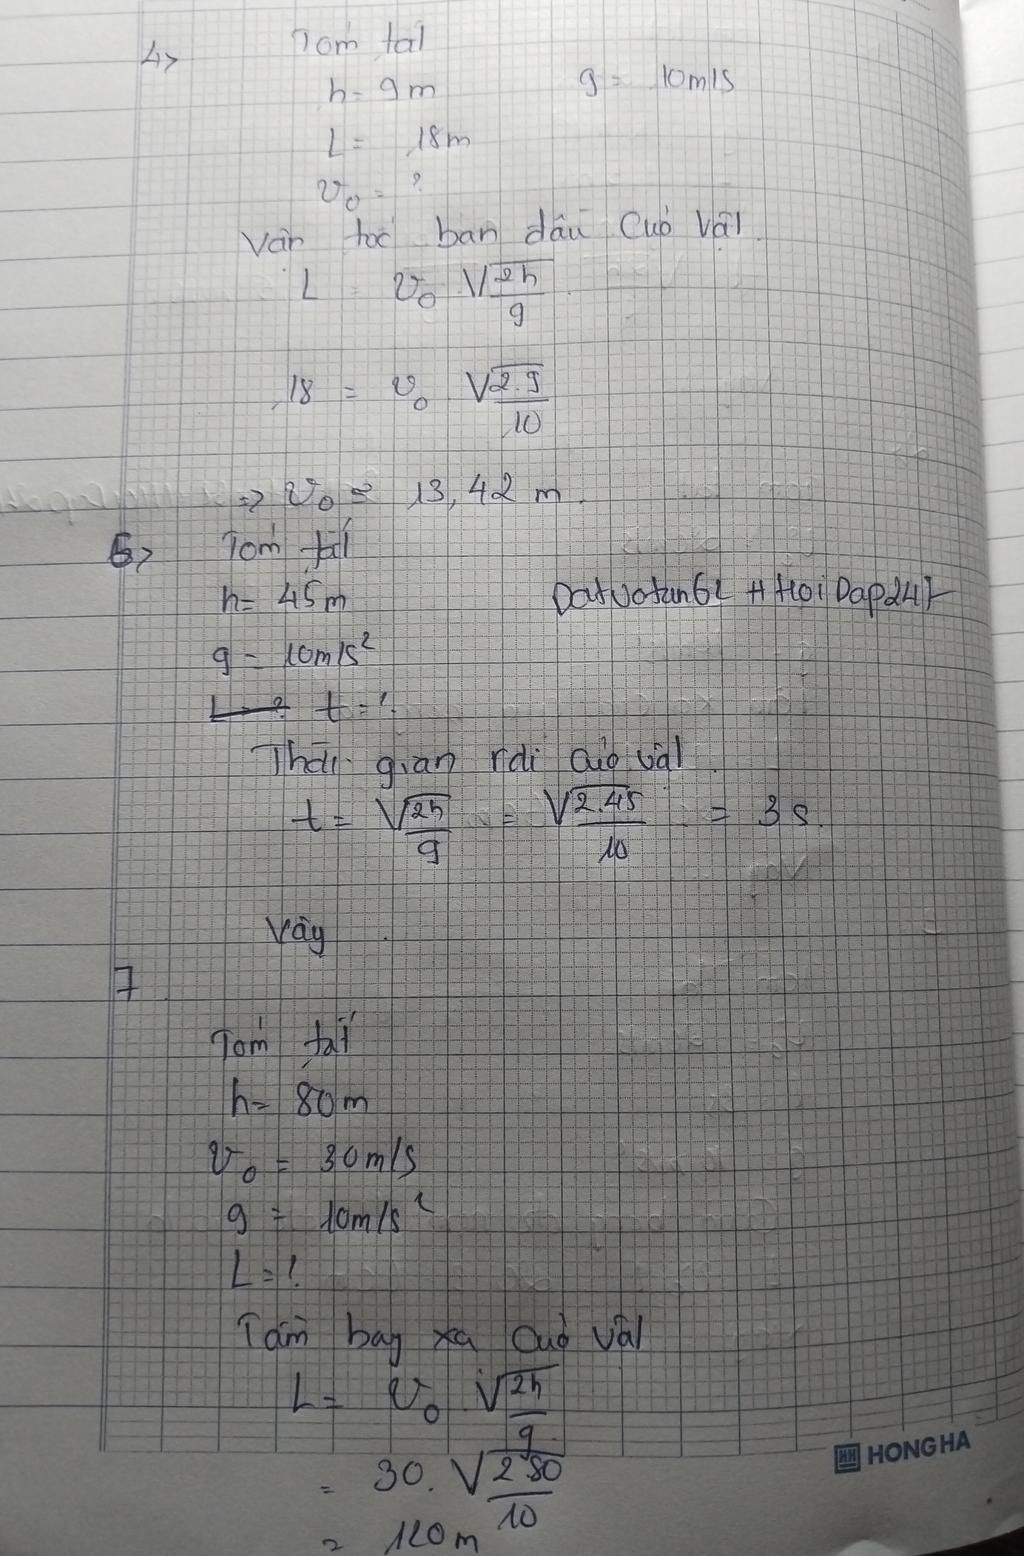 4> Tóm tắt
h = 9m g = 10m/s
L = 18m
v₀ = ?
Vận tốc ban đầu của vật
L = v₀ √2h/g
18 = v₀ √2.9/10
=> v₀ = 13,42 m.
6> Tóm tắt
h = 45m DatVotan62 # HoiDap247
g = 10m/s²
t = ?
Thời gian rơi của vật
t = √2h/g = √2.45/10 = 3s.
Vậy
7
Tóm tắt
h = 80m
v₀ = 30m/s
g = 10m/s²
L = ?
Tầm bay xa của vật
L = v₀ . √2h/g
= 30. √2.80/10
= 120m
HONG HA